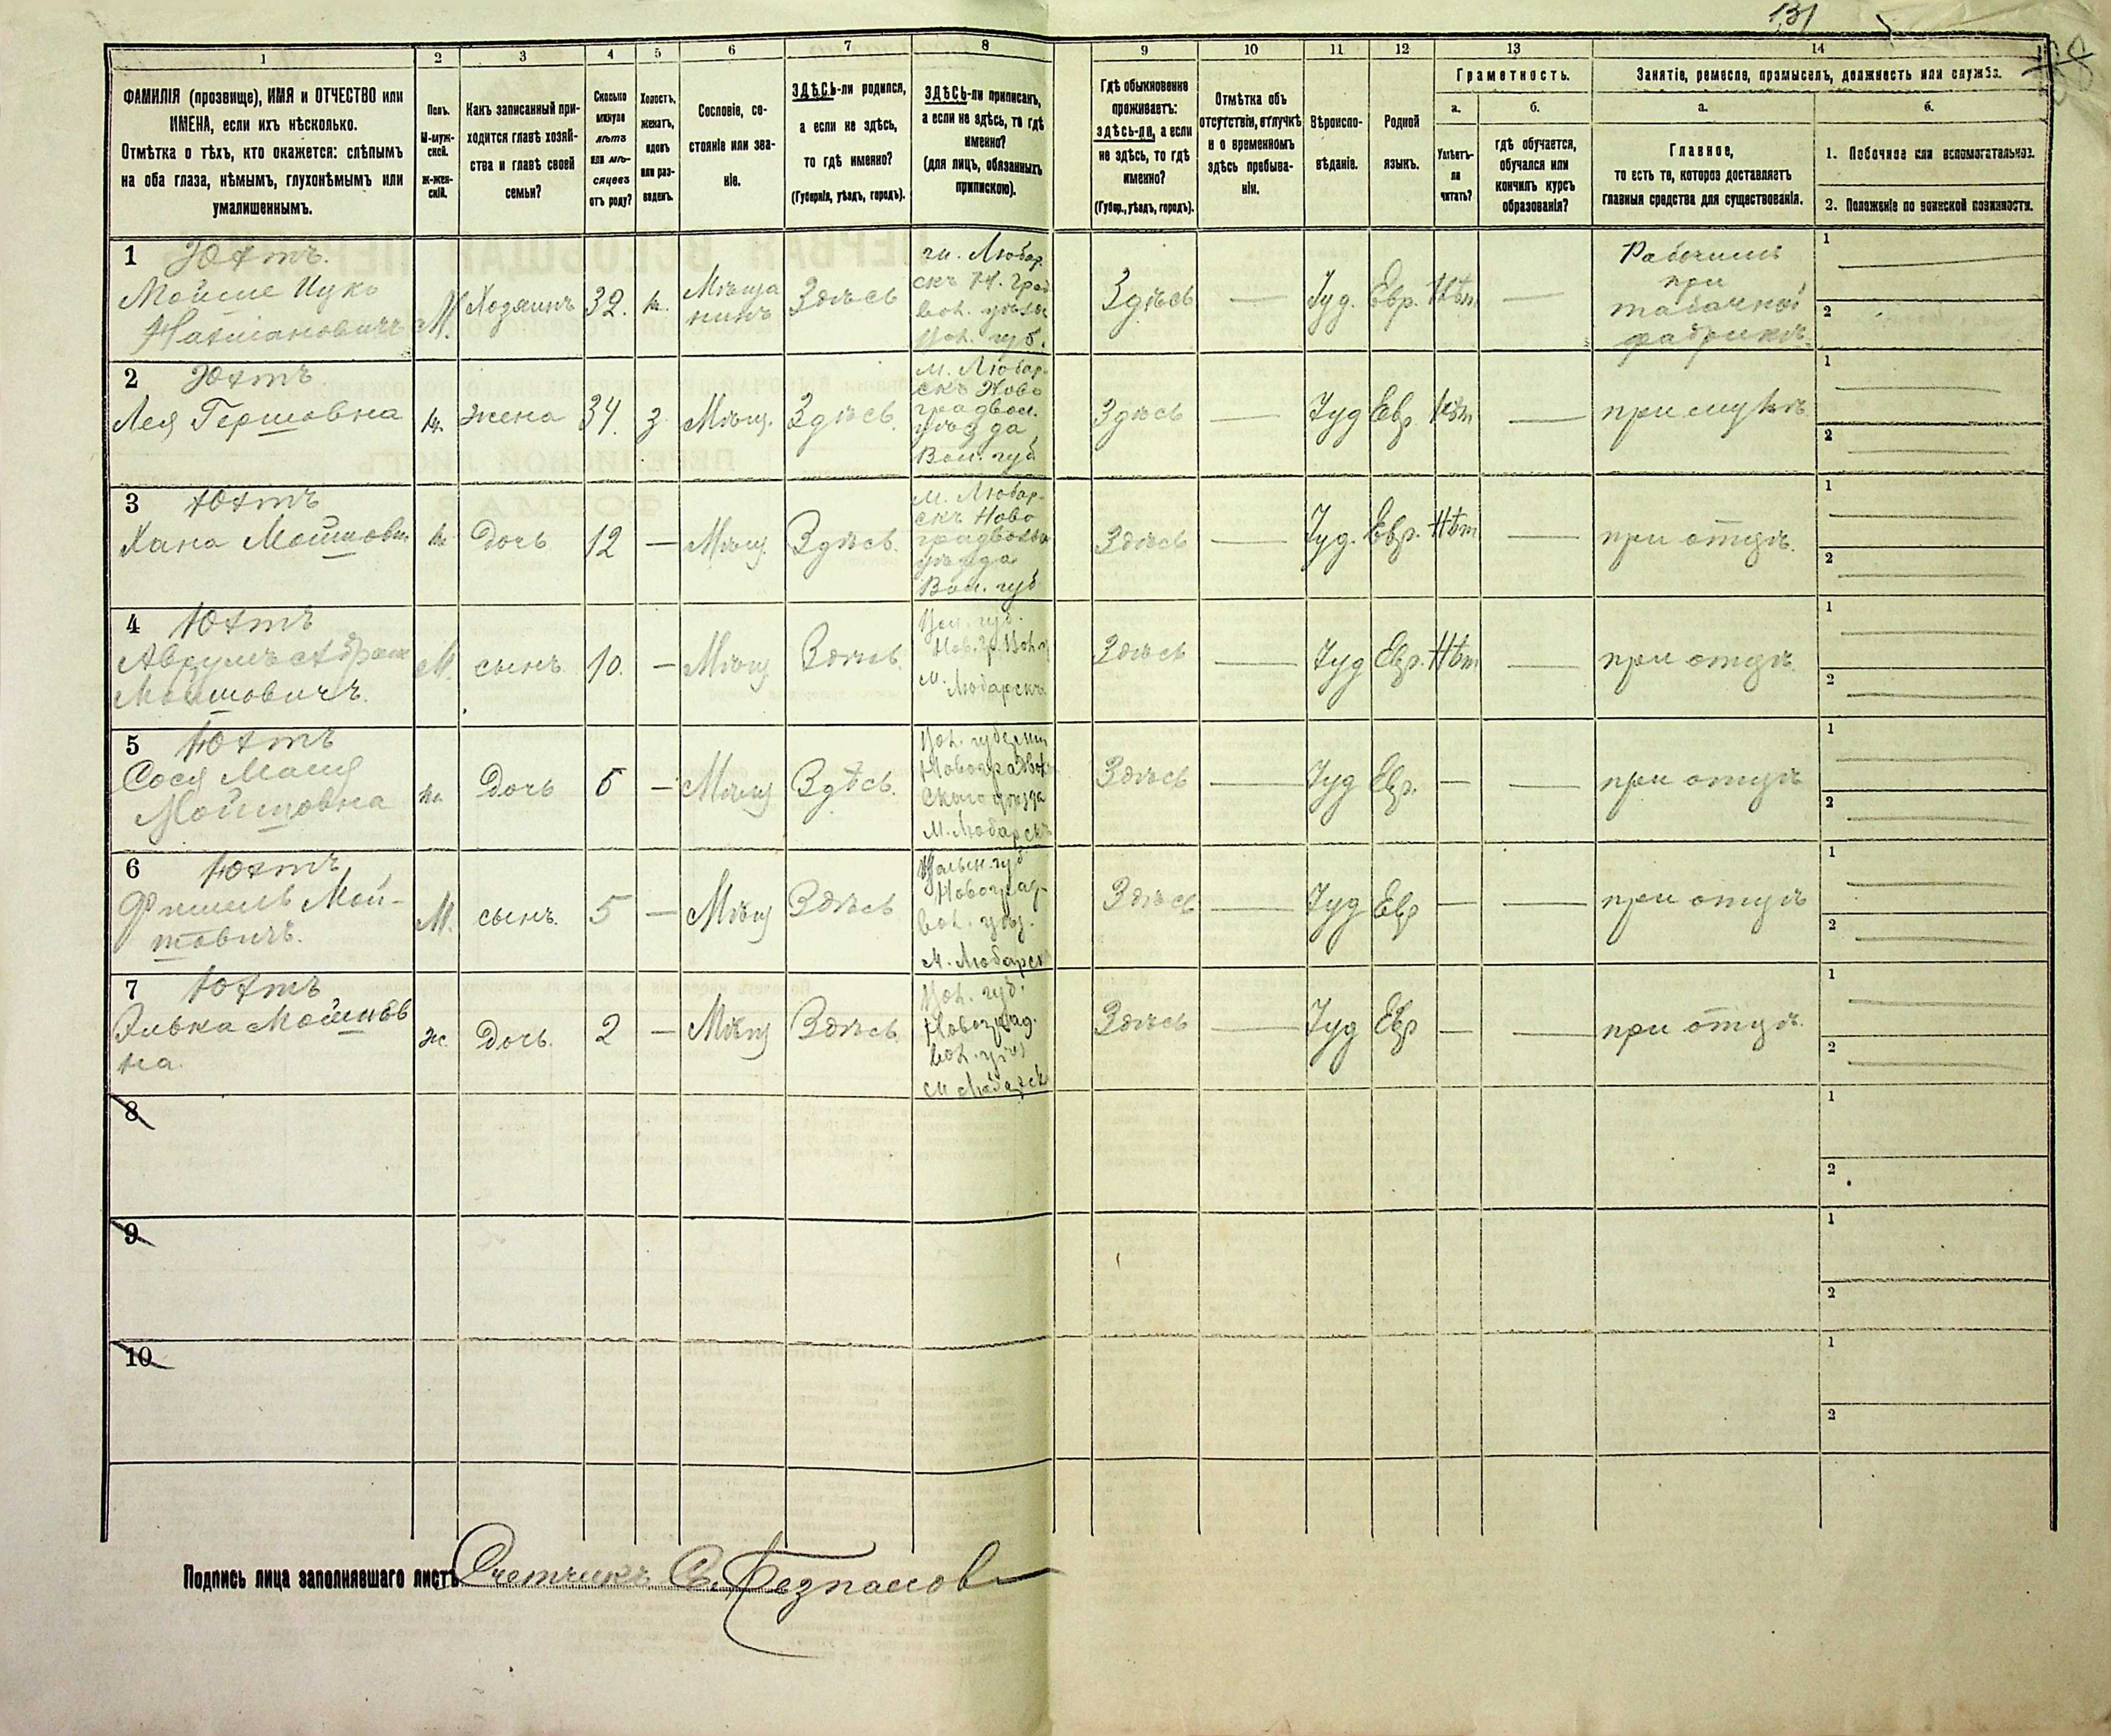 131
1
2
3
4
5
6
7
8
9
10
11
12
13
14
ФАМИЛІЯ (прозвище), ИМЯ и ОТЧЕСТВО или
ИМЕНА, если ихъ нѣсколько.
Отмѣтка о тѣхъ, кто окажется: слѣпымъ
на оба глаза, нѣмымъ, глухонѣмымъ или
умалишеннымъ.
Полъ.
М-муж-
ской.
ж-жен-
скій.
Какъ записанный при-
ходится главѣ хозяй-
ства и главѣ своей
семьи?
Сколько
минуло
лѣтъ
или мѣ-
сяцевъ
отъ роду?
Холостъ,
женатъ,
вдовъ
или раз-
веденъ.
Сословіе, со-
стояніе или зва-
ніе.
ЗДѢСЬ-ли родился,
а если не здѣсь,
то гдѣ именно?
(Губернія, уѣздъ, городъ).
ЗДѢСЬ-ли приписанъ,
а если не здѣсь, то гдѣ
именно?
(для лицъ, обязанныхъ
припискою).
Гдѣ обыкновенно
проживаетъ:
здѣсь-ли, а если
не здѣсь, то гдѣ
именно?
(Губер., уѣздъ, городъ).
Отмѣтка объ
отсутствіи, отлучкѣ
и о временномъ
здѣсь пребыва-
ніи.
Вѣроиспо-
вѣданіе.
Родной
языкъ.
Грамотность.
а.
б.
Умѣетъ-
ли
читать?
гдѣ обучается,
обучался или
кончилъ курсъ
образованія?
Занятіе, ремесло, промыселъ, должность или служба.
а.
б.
Главное,
то есть то, которое доставляетъ
главныя средства для существованія.
1. Побочное или вспомогательное.
2. Положеніе по воинской повинности.
1 Юхтъ.
Мойше Ицко
Нахмановичъ
М.
Хозяинъ
32.
ж.
Мѣща
нинъ
Здѣсь
Любар
скъ Н. Град
вол. уѣзда
Вол. губ.
Здѣсь
Іуд.
Евр.
Нѣт
Рабочимъ
при
табачной
фабрикѣ.
1
2
2 Юхтъ
Лея Гершовна
ж.
жена
34.
з.
Мѣщ.
Здѣсь.
м. Любар-
скъ Ново
градвол.
уѣзда
Вол. губ
Здѣсь
Іуд
Евр.
Нѣт
при мужѣ
1
2
3 Юхтъ
Хана Мошковн.
ж
Дочь
12
—
Мѣщ.
Здѣсь.
м. Любар-
скъ Ново
градволы
уѣзда
Вол. губ
Здѣсь
Іуд.
Евр.
Нѣт
при отцѣ.
1
2
4 Юхтъ
Аврумъ Абрам
Мошковичъ.
М.
сынъ.
10.
—
Мѣщ.
Здѣсь.
Вол. губ.
Нов. гр. Вол. у
м.
Любарскъ
Здѣсь
Іуд
Евр.
Нѣт
при отцѣ.
1
2
5 Юхтъ
Сося Малця
Мойшовна
ж.
Дочь
6
—
Мѣщ
Здѣсь.
Вол. губерніи
Новоградвол
скаго уѣзда
М. Любарскъ
Здѣсь
Іуд
Евр.
—
при отцѣ
1
2
6 Юхтъ
Фишель Мой-
шовичъ.
М.
сынъ.
5
—
Мѣщ
Здѣсь
Волын. губ
Новоград-
вол. уѣз.
М. Любарск
Здѣсь
Іуд
Евр
—
при отцѣ
1
2
7 Юхтъ
Элька Мошков
на.
ж.
Дочь.
2
—
Мѣщ
Здѣсь.
Вол. губ.
Новоград.
вол. уѣз
м Любарск
Здѣсь
Іуд
Евр
—
при отцѣ.
1
2
8
1
2
9
1
2
10
1
2
Подпись лица заполнявшаго листъ Счетчикъ